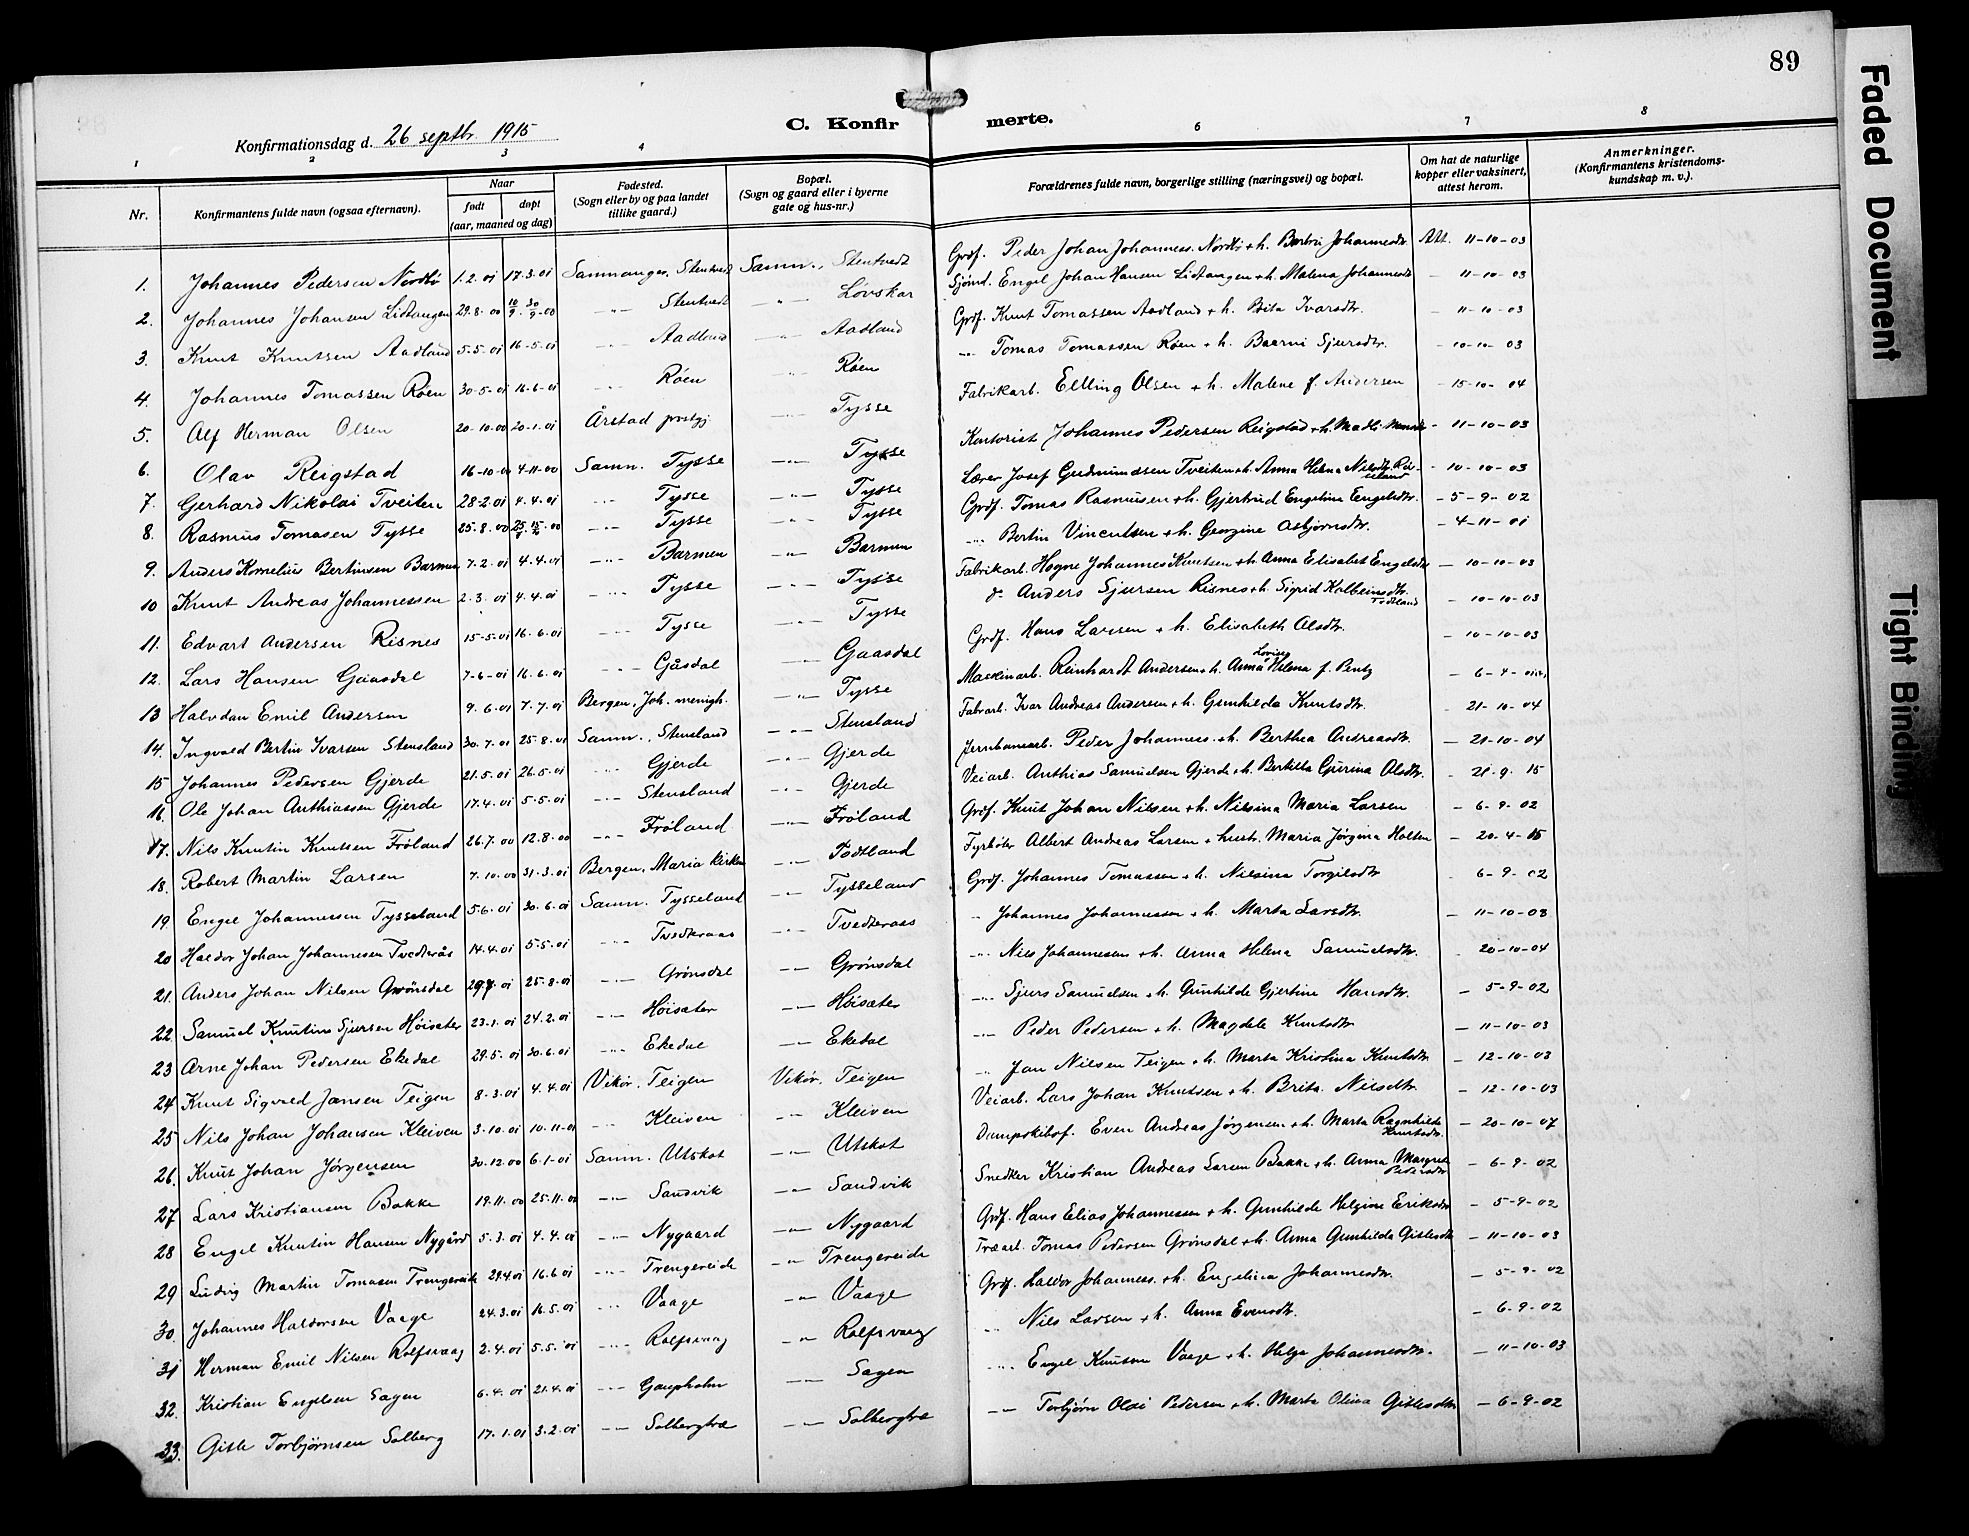 89
Konfirmationsdag d. 26 septbr. 1915
C. Konfirmerte.
1 2 3 4 6 7 8
Nr. Konfirmantens fulde navn (ogsaa efternavn). Naar født døpt (aar, maaned og dag) Fødested. (Sogn eller by og paa landet tillike gaard.) Bopæl. (Sogn og gaard eller i byerne gate og hus-nr.) Forældrenes fulde navn, borgerlige stilling (næringsvei) og bopæl. Om hat de naturlige kopper eller vaksinert, attest herom. Anmerkninger. (Konfirmantens kristendomskundskap m. v.).
1. Johannes Pedersen Nordbø 1.2.01 17.3.01 Samnanger, Stentvedt Samn., Stentvedt Grdf. Peder Johan Johanness. Nordbø + h. Barbra Johannesdtr. Att. 11-10-03
2. Johannes Johansen Lidtangen 29.8.00 Stentvedt Løvskar Engel Johan Hansen Lidtangen + h. Malena Johannesdtr - 11-10-03
3. Knut Knutsen Aadland 5-5.01 16-5.01 Aadland Aadland Grdf. Knut Tomassen Aadland + h. Brita Ivarsdtr. - 11-10-03
4. Johannes Tomassen Røen 30-5-01 16-6-01 Røen Røen Tomas Tomassen Røen + h. Sjursdtr. - 10-10-03
5. Alf Herman Olsen 20-10.00 20-1.01 Årstad prstgj Tysse Fabrikarb. Elling Olsen + h. Malene f. Andersen - 15-10-04
6. Olav Reigstad 16-10-00 4-11-00 Samn. Tysse Tysse Kontorist Johannes Pedersen Reigstad + h. - 11-10-03
7. Gerhard Nikolai Tveiten 28-2.01 4.4.01 Tysse Tysse Lærer Josef Gudmundsen Tveiten + h. Anna Helena - 10-10-03
8. Rasmus Tomasen Tysse 25.8.00 Tysse Tysse Grdf. Tomas Rasmusen + h. Gjertrud Engelina Engelsdtr. - 5-9-02
9. Anders Kornelius Bertinsen Barmen 7-2.01 4.4.01 Barmen Barmen Bertin Vincentsen + h. Georgine Asbjørnsdtr. - 4-11-01
10 Knut Andreas Johannessen 2.3.01 4.4.01 Tysse Tysse Fabrikarb. Hogne Johannes Knutsen + h. Anna Elisabet Engelsdtr - 10-10-03
11. Edvart Andersen Risnes 15-5.01 16.6.01 Tysse Tysse Anders Sjursen Risnes + h. Sigrid Kolbeinsdtr. Todtland - 10-10-03
12. Lars Hansen Gaasdal 7-6-01 16.6.01 Gåsdal Gaasdal Grdf. Hans Larsen + h. Elisabeth Olsdtr. - 10-10-03
13 Halvdan Emil Andersen 9.6.01 7.7.01 Bergen, Joh. menigh. Tysse Maskinarb. Reinhardt Andersen + h. Anna Lovise Helena f. Bentz - 6-4-
14. Ingvald Bertin Ivarsen Stensland 30.7.01 25.8.01 Samn., Stensland Stensland Fabrarb. Ivar Andreas Andersen + h. Gunhilda Knutsdtr. - 21-10-04
15 Johannes Pedersen Gjerde 21.5.01 26.5.01 Gjerde Gjerde Jernbanearb. Peder Johanness. + h. Berthea Andreasdtr. - 21-10-04
16. Ole Johan Anthiassen Gjerde 17.4.01 5-5.01 Stensland Gjerde Veiarb. Anthias Samuelsen Gjerde + h. Olsdtr. - 21-9.15
17. Nils Knutin Knutsen Frøland 26.7.00 12.8.00 Frøland Frøland Grdf. Knut Johan Nilsen + h. Nilsina Maria Larsen - 6-9-02
18. Robert Martin Larsen 7.10.00 31.3.01 Bergen, Maria kirken Todtland Fyrbøter Albert Andreas Larsen + hustr. Maria Jørgina Holten - 20-4-15
19. Engel Johannessen Tysseland 5.6.01 30.6.01 Samn. Tysseland Tysseland Grdf. Johannes Tomassen + h. Nilsina Torgilsdtr - 6-9-02
20 Haldor Johan Johannesen Tvedterås 14.4.01 5.5.01 Tvedteraas Tvedteraas Johannes Johannessen + h. Marta Larsdtr. - 11-10-03
21. Anders Johan Nilsen Grønsdal 01 25.8.01 Grønsdal Grønsdal Nils Johannesen + h. Anna Helena Samuelsdtr. 20-10-04
22. Samuel Knutinus Sjursen Høisæter 23.1.01 24.2.01 Høisæter Høisæter Sjurs Samuelsen + h. Gunhilde Gjertine Hansdtr. - 5-9-02
23 Arne Johan Pedersen Ekedal 29.5.01 30.6.01 Ekedal Ekedal Peder Pedersen + h. Magdela Knutsdtr - 11-10-03
24 Knut Sigvald Jansen Teigen 8-3.01 4.4.01 Vikør. Teigen Vikør. Teigen Jan Nilsen Teigen + h. Marta Kristina Knutsdtr - 12-10-03
25 Nils Johan Johansen Kleiven 3-10.01 10-11-01 Kleiven Kleiven Veiarb. Lars Johan Knutsen + h. Brita Nilsdtr. - 12-10-03
26. Knut Johan Jørgensen 30.12.00 6.1.01 Samn. Utskot Utskot Dampskibsf. Even Andreas Jørgensen + h. Marta Ragnhilda Knutsdtr. - 20-10-07
27 Lars Kristiansen Bakke 19.11.00 25.11.00 Sandvik Sandvik Snedker Kristian Andreas Larsen Bakke + h. Anna Margreta Pedersdtr - 6-9-02
28 Engel Knutin Hansen Nygård 5.3.01 4.4.01 Nygaard Nygaard Grdf. Hans Elias Johannessen + h. Gunhilde Helgine Eriksdtr - 5-9-02
29 Ludvig Martin Tomasen Trengereide 29.4.01 16.6.01 Trengereide Trengereide Træarb. Tomas Pedersen Grønsdal + h. Anna Gunhilda Gitlesdtr - 11-10-03
30. Johannes Haldorsen Vaage 24.3.01 16.5.01 Vaage Vaage Grdf. Haldor Johanness. + h. Engelina Johannesdtr. - 5-9-02
31 Herman Emil Nilsen Rolfsvaag 2.4.01 5.5.01 Rolfsvaag Rolfsvaag Nils Larsen + h. Anna Evensdtr. - 6-9-02
32. Kristian Engelsen Sagen 6.4.01 21.4.01 Gaupholm Sagen Engel Knutsen Vaage + h. Helga Johannesdtr. - 11-10-03
33. Gitle Torbjørnsen Solberg 17.1.01 3.2.01 Solbergtræ Solbergtræ Torbjørn Olai Pedersen + h. Marta Olina Gitlesdtr - 6-9-02
Faded Document
Tight Binding